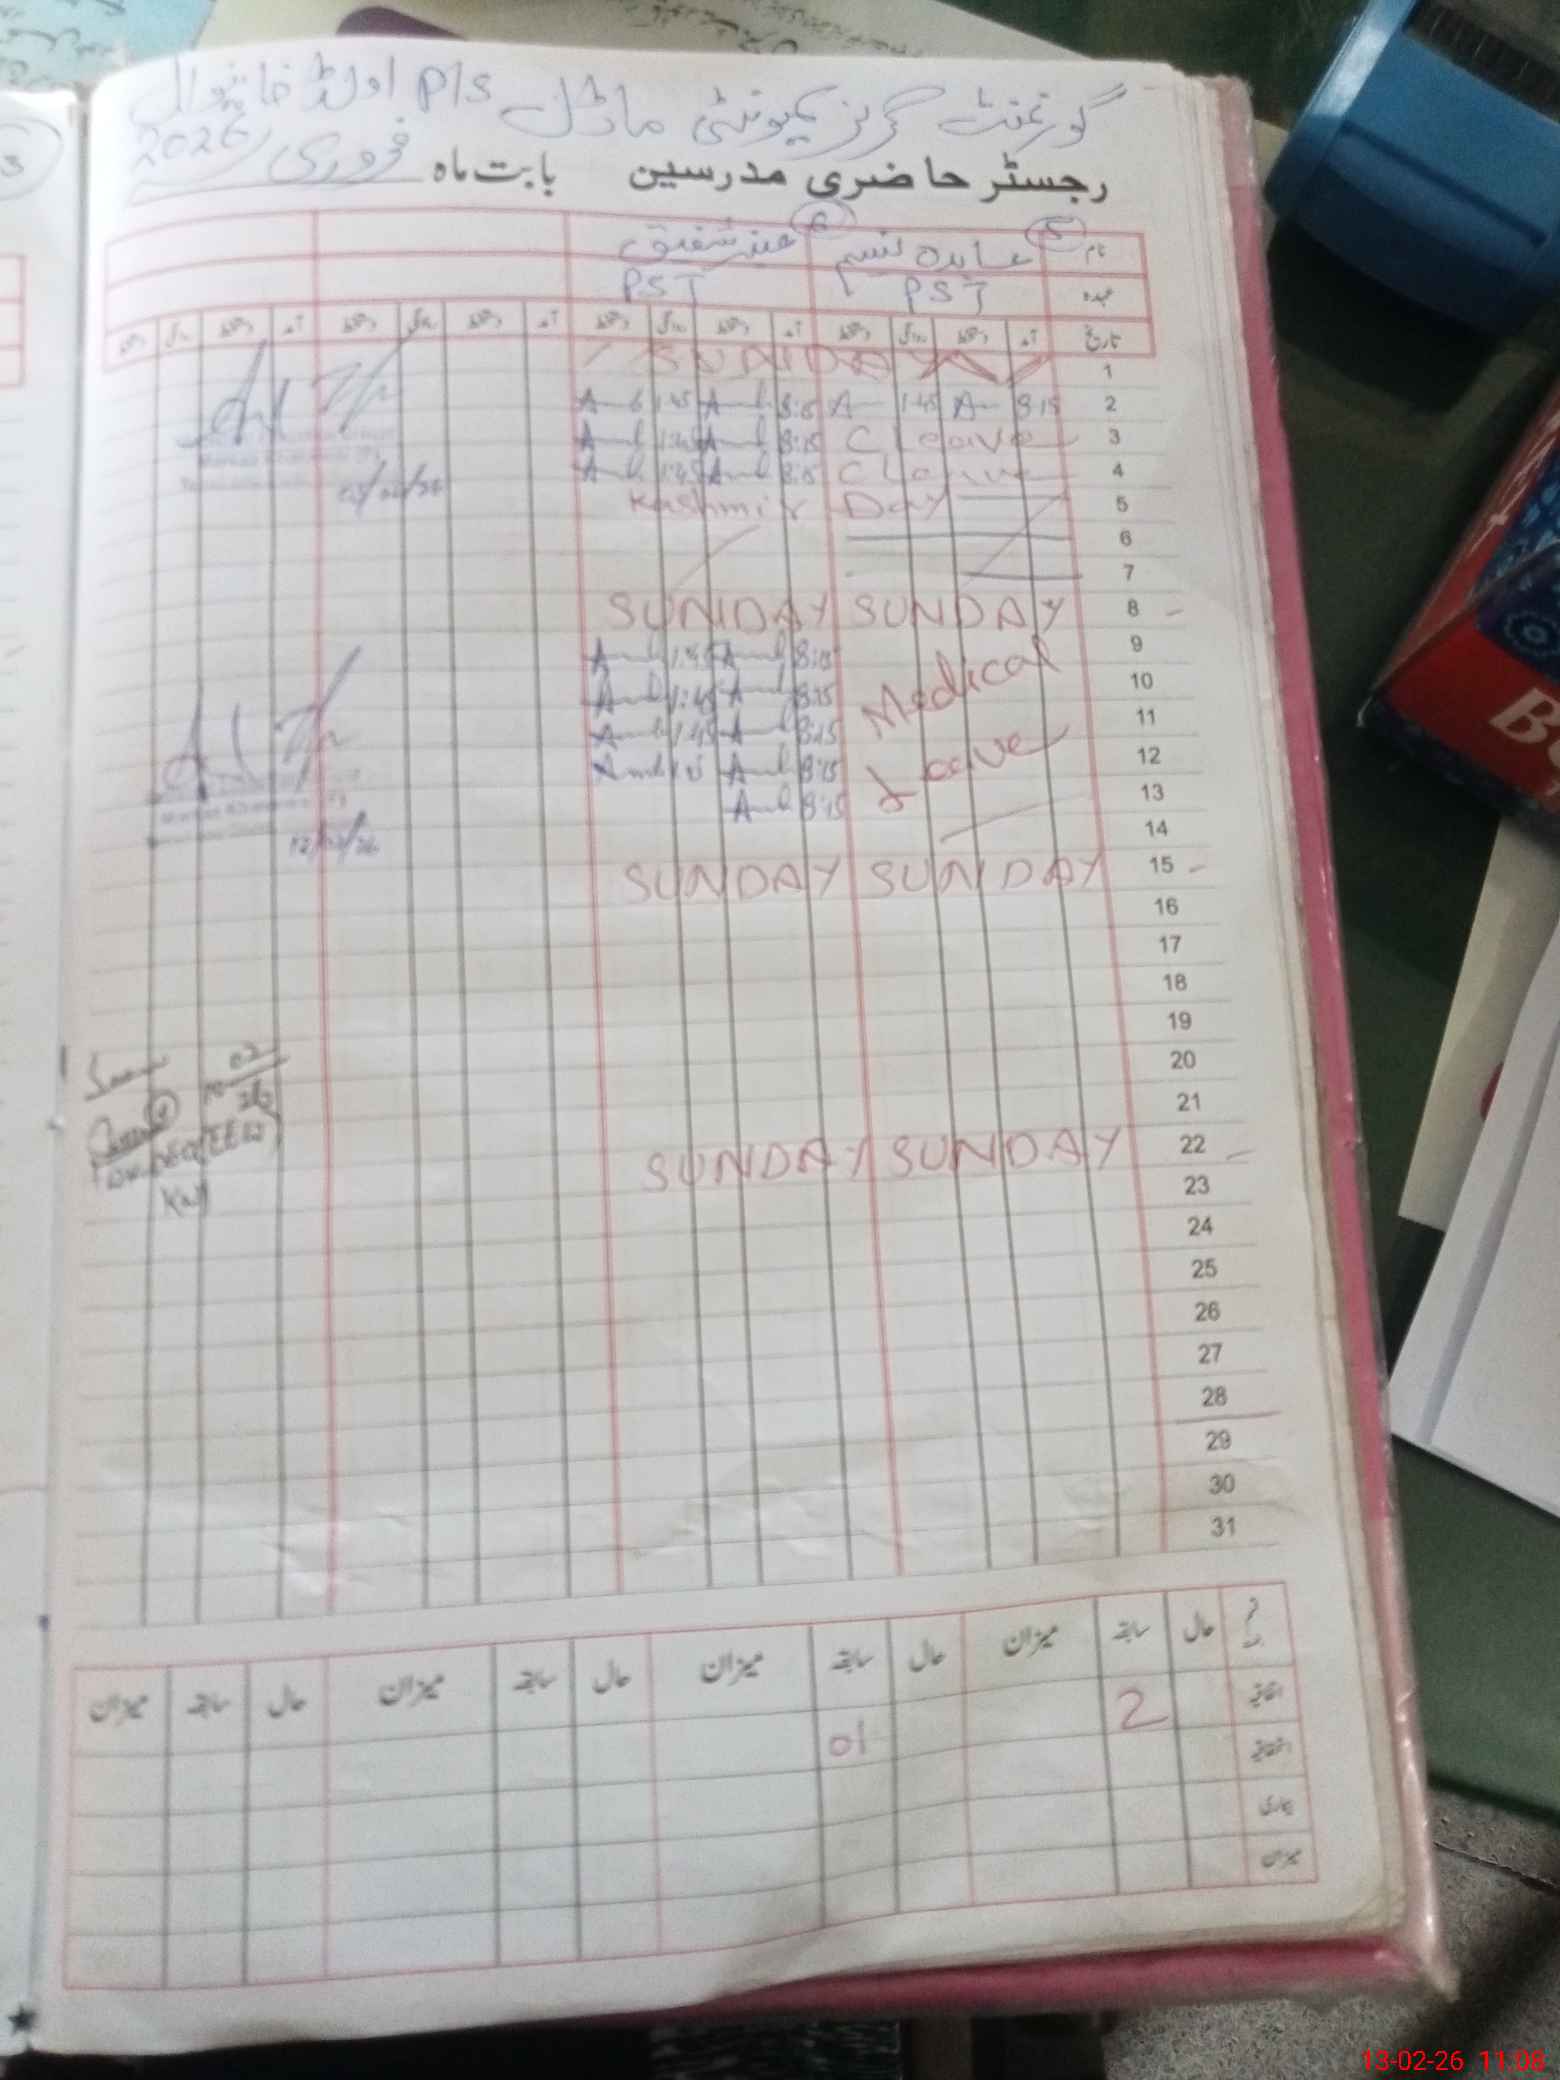 گورنمنٹ گرلز کمیونٹی ماڈل P/S اولڈ خانیوال
رجسٹر حاضری مدرسین بابت ماہ فروری 2026
نام 5 عابدہ نسیم 6 شفیق
عہدہ PST PST
تاریخ آمد دستخط روانگی دستخط آمد دستخط روانگی دستخط آمد دستخط روانگی دستخط آمد دستخط روانگی دستخط
1 SUNDAY
2 8:15 A 1:45 A 8:15 1:45
3 C Leave 8:15 1:45
4 C Leave 8:15 1:45
5 Kashmir Day
6
7
8 SUNDAY SUNDAY
9 Medical 8:15 1:45
10 8:15 1:45
11 8:15 1:45
12 Leave 8:15
13 8:15
12/02/26
14
15 SUNDAY SUNDAY
16
17
18
19
20
21
22 SUNDAY SUNDAY
23
24
25
26
27
28
29
30
31
حال سابقہ میزان حال سابقہ میزان حال سابقہ میزان حال سابقہ میزان
اتفاقیہ 2 01
بیماری
میزان
13-02-26 11:08